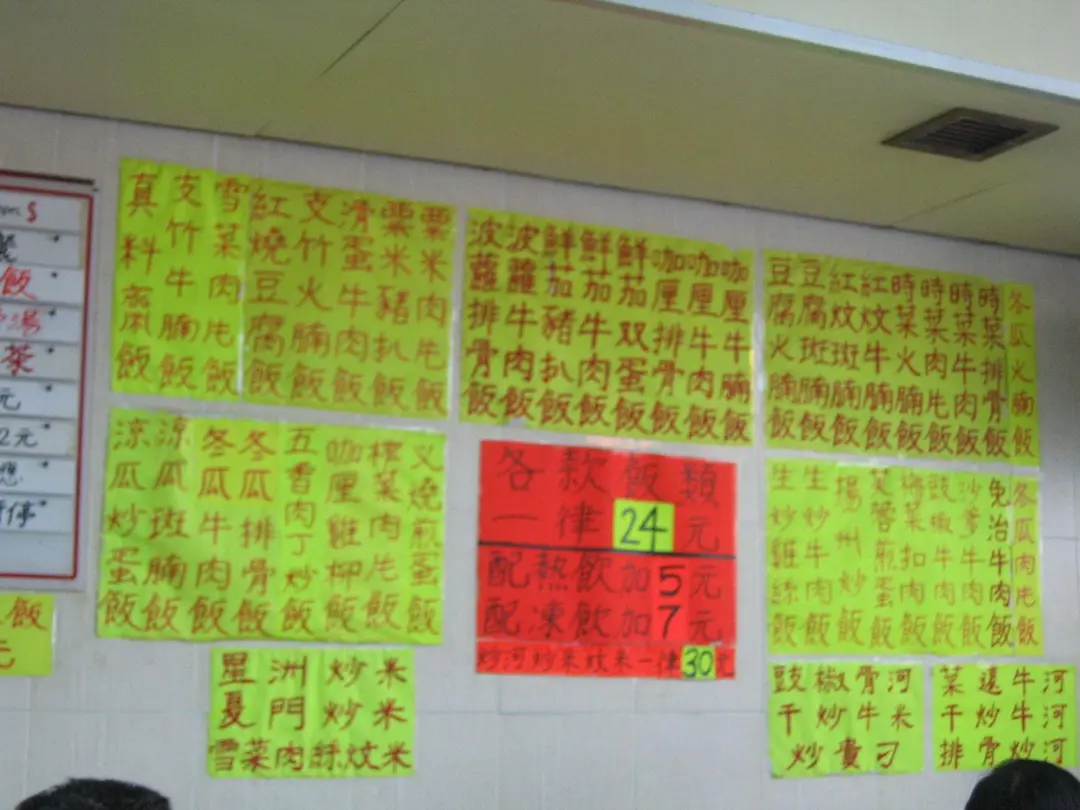 $
餐
飯
湯
茶
元
2元
應
暫停
飯
元
真料齋飯
支竹牛腩飯
雪菜肉片飯
紅燒豆腐飯
支竹火腩飯
滑蛋牛肉飯
粟米豬扒飯
粟米肉片飯
波蘿排骨飯
波蘿牛肉飯
鮮茄豬扒飯
鮮茄牛肉飯
鮮茄双蛋飯
咖厘排骨飯
咖厘牛肉飯
咖厘牛腩飯
豆腐火腩飯
豆腐斑腩飯
紅炆斑腩飯
紅炆牛腩飯
時菜火腩飯
時菜肉片飯
時菜牛肉飯
時菜排骨飯
冬瓜火腩飯
涼瓜炒蛋飯
涼瓜斑腩飯
冬瓜牛肉飯
冬瓜排骨飯
五香肉丁炒飯
咖厘雞柳飯
榨菜肉片飯
叉燒煎蛋飯
各款飯類
一律24元
配熱飲加5元
配凍飲加7元
炒河炒米炆米一律30元
生炒雞絲飯
生炒牛肉飯
揚州炒飯
芙蓉煎蛋飯
梅菜扣肉飯
豉椒牛肉飯
沙爹牛肉飯
免治牛肉飯
冬瓜肉片飯
星洲炒米
夏門炒米
雪菜肉絲炆米
豉椒骨河
干炒牛米
炒貴刁
菜遠牛河
干炒牛河
排骨炒河